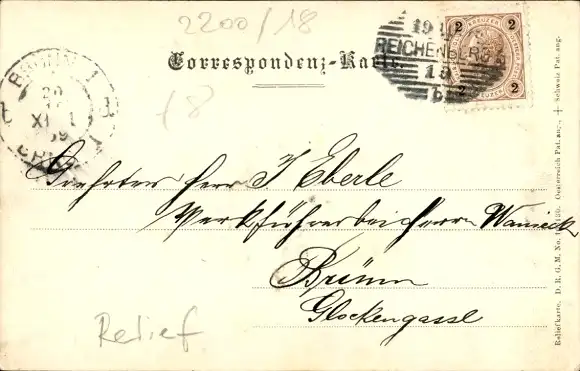 2200/18
Correspondenz-Karte.
2 KREUZER 2
2 KREUZER 2
REICHENBERG
18
BRÜNN
20
XI
Geehrten Herr J Eberle
Werkführer bei Herrn Wanieck
Brünn
Glockengasse
Relief
Reliefkarte, D. R. G. M. Oesterreich Pat. ang., + Schweiz Pat. ang.